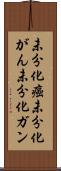 未分化癌未分化
がん未分化ガン